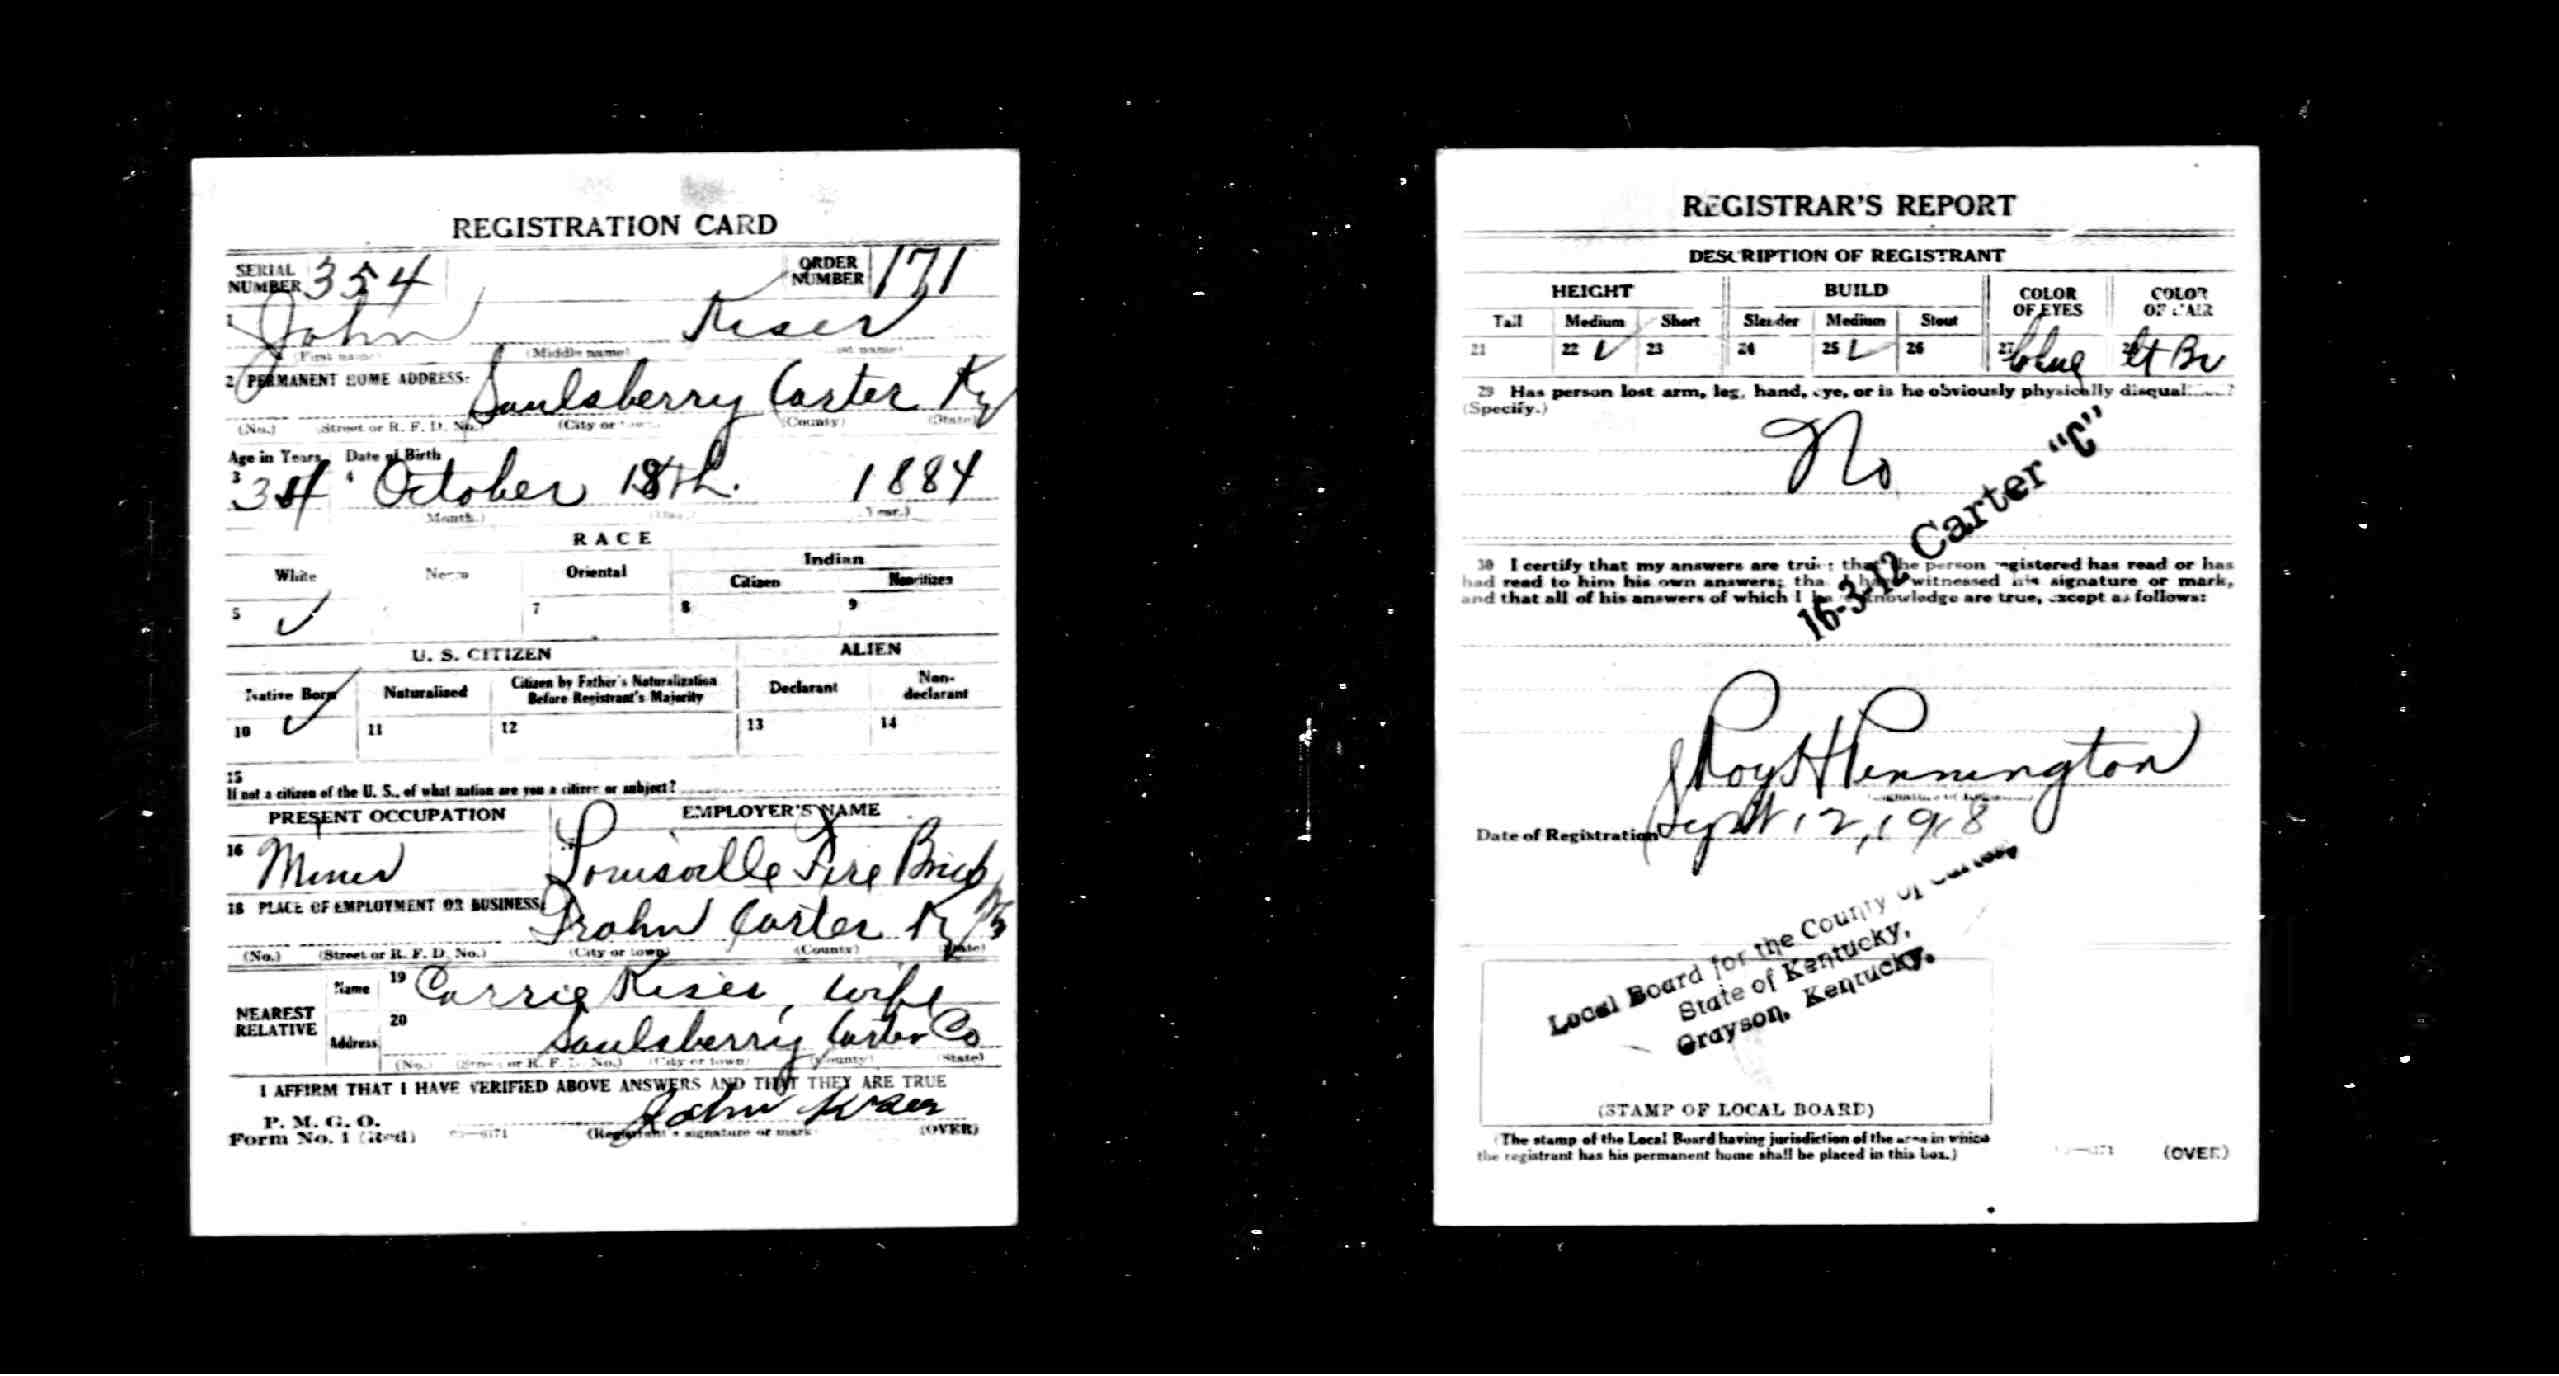 REGISTRATION CARD
SERIAL NUMBER 354 ORDER NUMBER 171
1 John Kiser
(First name) (Middle name)
2 PERMANENT HOME ADDRESS: Saulsberry Carter Ky
(No.) (Street or R. F. D. No.) (City or town) (County) (State)
Age in Years Date of Birth
3 34 4 October 18th. 1884
(Month.) (Day.) (Year.)
RACE
White Negro Oriental Indian
Citizen Noncitizen
5 ✓ 7 8 9
U. S. CITIZEN ALIEN
Native Born Naturalized Citizen by Father's Naturalization Before Registrant's Majority Declarant Non-declarant
10 ✓ 11 12 13 14
15
If not a citizen of the U. S., of what nation are you a citizen or subject?
PRESENT OCCUPATION EMPLOYER'S NAME
16 Miner Louisville Fire Brick
18 PLACE OF EMPLOYMENT OR BUSINESS: Carter Ky
(No.) (Street or R. F. D. No.) (City or town) (County) (State)
NEAREST RELATIVE Name 19 Carrie Kiser, wife
Address 20 Saulsberry Carter Co
(No.) (Street or R. F. D. No.) (City or town) (County) (State)
I AFFIRM THAT I HAVE VERIFIED ABOVE ANSWERS AND THAT THEY ARE TRUE
P. M. G. O.
Form No. 1 (Red) John Kiser
(Registrant's signature or mark) (OVER)
REGISTRAR'S REPORT
DESCRIPTION OF REGISTRANT
HEIGHT BUILD COLOR OF EYES COLOR OF HAIR
Tall Medium Short Slender Medium Stout
21 22 ✓ 23 24 25 ✓ 26 27 blue 28 Lt Br
29 Has person lost arm, leg, hand, eye, or is he obviously physically disqualified?
(Specify.)
No
16-3-12 Carter "C"
30 I certify that my answers are true; that the person registered has read or has
had read to him his own answers; that I have witnessed his signature or mark,
and that all of his answers of which I have knowledge are true, except as follows:
Roy H Pennington
Date of Registration Sept 12, 1918
Local Board for the County of Carter,
State of Kentucky,
Grayson, Kentucky.
(STAMP OF LOCAL BOARD)
(The stamp of the Local Board having jurisdiction of the area in which
the registrant has his permanent home shall be placed in this box.)
(OVER)